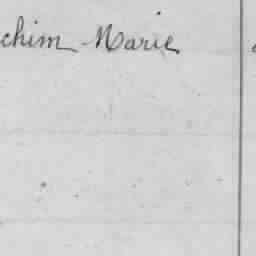 chim Marie